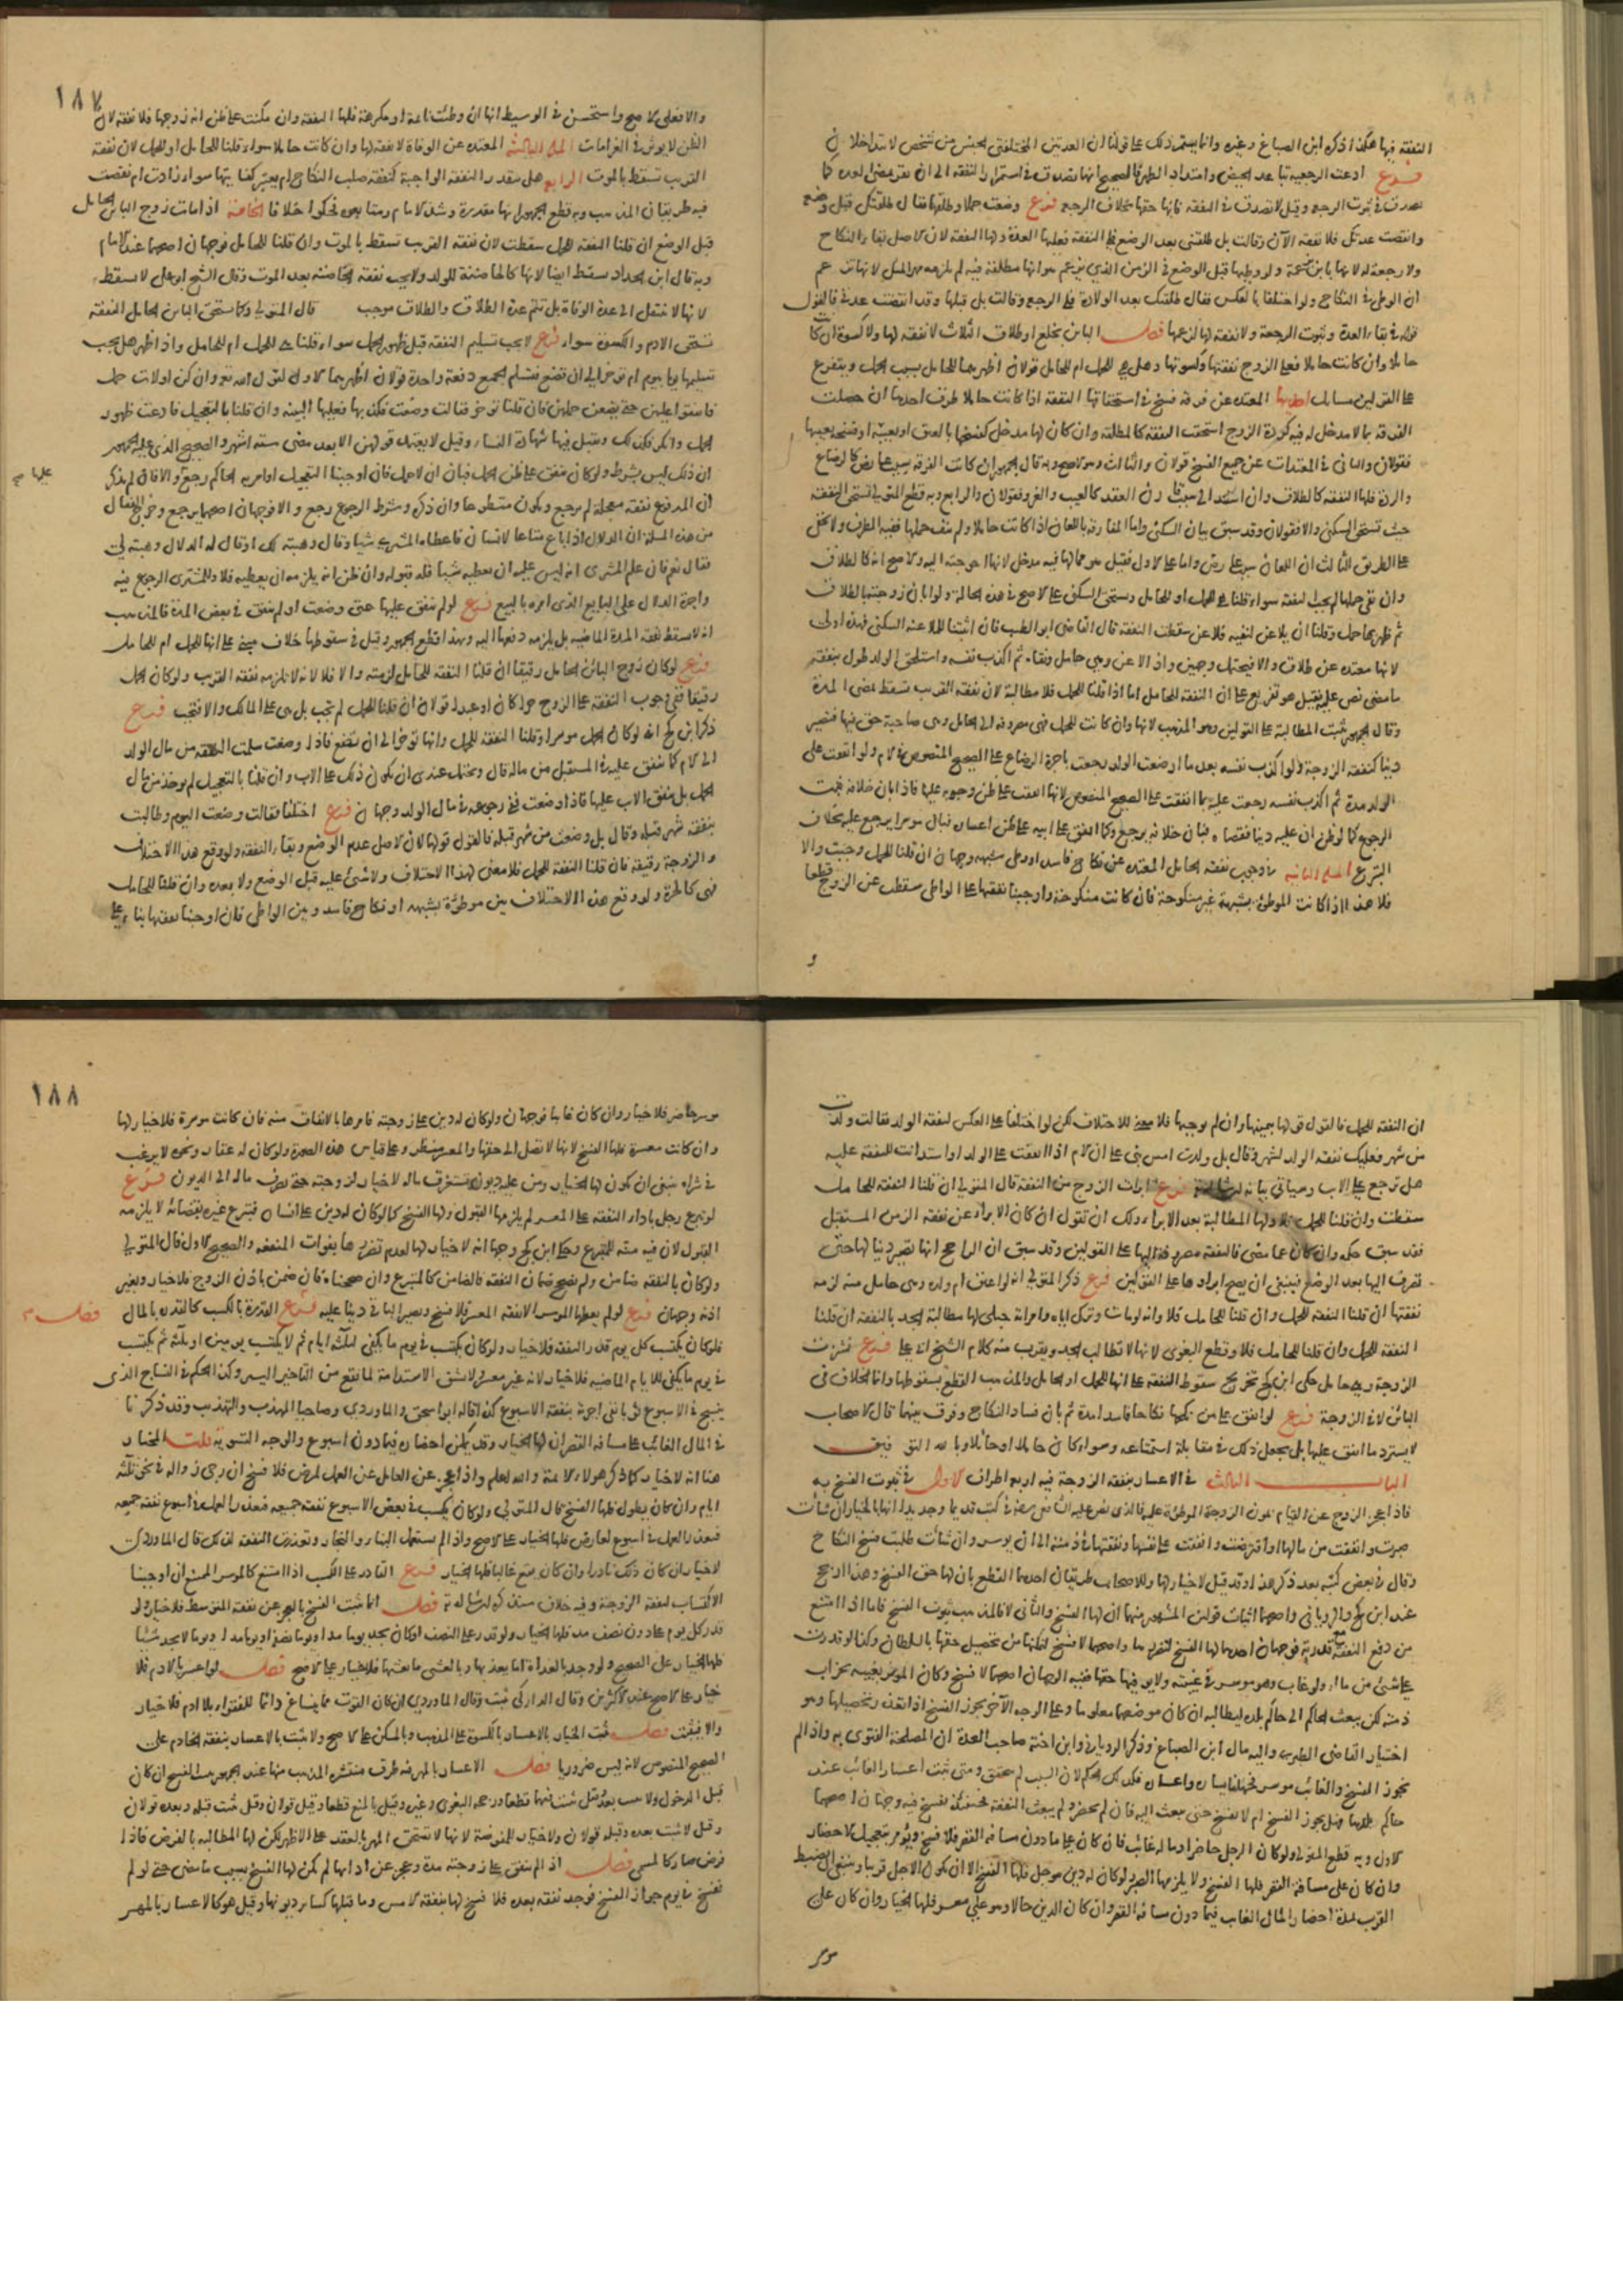 النفقة فيها هكذا ذكره ابن الصباغ وغيره وانما يستمر ذلك على قولنا ان العدتين المختلفتي الجنس من شخص لا تتداخلان
فرع ادعت الرجعية تباعد الحيض وامتداد الطهر فالصحيح انها تصدق في استمرار النفقة الى ان تقر بمضي العدة كما
تصدق في ثبوت الرجعة وقيل لا تصدق في النفقة فانها حقها بخلاف الرجعة فرع وضعت حملا وطلقها فقال طلقتك قبل وضع
وانقضت عدتك فلا نفقة الآن وقالت بل طلقتني بعد الوضع فلي النفقة فعليها العدة ولها النفقة لان الاصل بقاء النكاح
ولا رجعة له لانها باين بزعمه ولو وطيها قبل الوضع في الزمن الذي يزعم هو انها مطلقة فيه لم يلزمه مهر المثل لانها تزعم
ان الوطي في النكاح ولو اختلفا بالعكس فقال طلقتك بعد الولادة فلي الرجعة وقالت بل قبلها وقد انقضت عدتي فالقول
قوله في بقاء العدة وثبوت الرجعة ولا نفقة لها لزعمها فصل الباين بخلع او طلاق الثلاث لا نفقة لها ولا كسوة ان كانت
حايلا وان كانت حاملا فعلى الزوج نفقتها وكسوتها وهل هي للحمل ام للحامل قولان اظهرهما للحامل بسبب الحمل ويتفرع
على القولين مسايل احديها المعتدة عن فرقة فسخ في استحقاقها النفقة اذا كانت حاملا طرق احدها ان حصلت
الفرقة بما لا مدخل له فيه كردة الزوج استحقت النفقة كالمطلقة وان كان لها مدخل كفسخها بالعتق او بعيبه او فسخه بعيبها
فقولان والثاني في المعتدات عن جميع الفسخ قولان والثالث وهو الاصح وبه قال الجمهور ان كانت الفرقة بسبب عارض كالرضاع
والردة فلها النفقة كالطلاق وان استند الى سبب قارن العقد كالعيب والغرور فقولان والرابع وبه قطع المتولي تستحق النفقة
حيث تستحق السكنى والا فقولان وقد سبق بيان السكنى واما المفارقة باللعان اذا كانت حاملا ولم ينف حملها ففيه الطرق ولا يخفى
على الطريق الثالث ان اللعان سبب عارض واما على الاول فقيل هو مما لها فيه مدخل لانها احوجته اليه والاصح انه كالطلاق
وان نفى حملها لم يجب النفقة سواء قلنا هي للحمل او للحامل وتستحق السكنى على الاصح في هذه الحالة ولو ابان زوجته بالطلاق
ثم ظهر بها حمل وقلنا ان يلاعن لنفيه فلاعن سقطت النفقة قال القاضي ابو الطيب فان اثبتنا للملاعنة السكنى فهذه اولى
لانها معتدة عن طلاق والا فيحتمل وجهين واذا لاعن وهي حامل ونفاه ثم اكذب نفسه واستلحق الولد طولب بنفقة
ما مضى نص عليه فقيل هو تفريع على ان النفقة للحامل اما اذا قلنا للحمل فلا مطالبة لان نفقة القريب تسقط بمضي المدة
وقال الجمهور تثبت المطالبة على القولين وهو المذهب لانها وان كانت للحمل فهي مصروفة الى الحامل وهي صاحبة حق فيها فتصير
دينا كنفقة الزوجة ولو اكذب نفسه بعد ما ارضعت الولد رجعت باجرة الرضاع على الصحيح المنصوص في الام ولو انفقت على
الولد مدة ثم اكذب نفسه رجعت عليه بما انفقت على الصحيح المنصوص لانها انفقت على ظن وجوبه عليها فاذا بان خلافه ثبت
الرجوع كما لو ظن ان عليه دينا فقضاه فبان خلافه يرجع وكما انفق على ابيه على ظن اعساره فبان موسرا يرجع عليه بخلاف
التبرع المسئلة الثانية في وجوب نفقة الحامل المعتدة عن نكاح فاسد او وطي شبهة وجهان ان قلنا للحمل وجبت والا
فلا هذا اذا كانت الموطوءة بشبهة غير منكوحة فان كانت منكوحة واوجبنا نفقتها على الواطي سقطت عن الزوج قطعا
و
١٨٧
والا فعلى الاصح واستحسن في الوسيط انها ان وطئت نائمة او مكرهة فلها النفقة وان مكنت على ظن انه زوجها فلا نفقة لان
الظن لا يوثر في الغرامات المسئلة الثالثة المعتدة عن الوفاة لا نفقة لها وان كانت حاملا سواء قلنا للحامل او للحمل لان نفقة
القريب تسقط بالموت الرابع هل تتقدر النفقة الواجبة كنفقة صلب النكاح ام يعتبر كفايتها سواء زادت ام نقصت
فيه طريقان المذهب وبه قطع الجمهور انها مقدرة وشذ الامام ومتابعوه فحكوا خلافا الخامسة اذا مات زوج البائن الحامل
قبل الوضع ان قلنا النفقة للحمل سقطت لان نفقة القريب تسقط بالموت وان قلنا للحامل فوجهان اصحهما عند الامام
وبه قال ابن الحداد تسقط ايضا لانها كالحاضنة للولد ولا يجب نفقة الحاضنة بعد الموت وقال الشيخ ابو علي لا تسقط
لانها لا تنتقل الى عدة الوفاة بل تتم عدة الطلاق والطلاق موجب قال المتولي وكما تستحق البائن الحامل النفقة
تستحق الادم والكسوة سواء فرع لا يجب تسليم النفقة قبل ظهور الحمل سواء قلنا هي للحمل ام للحامل واذا ظهر هل يجب
تسليمها يوما بيوم ام توخر الى ان تضع فتسلم الجميع دفعة واحدة قولان اظهرهما الاول لقول الله تعو وان كن اولات حمل
فانفقوا عليهن حتى يضعن حملهن فان قلنا توخر فقالت وضعت فكذبها فعليها البينة وان قلنا بالتعجيل فادعت ظهور
الحمل وانكر فكذلك وتقبل فيها شهادة النساء وقيل لا يعتمد قولهن الا بعد مضي ستة اشهر والصحيح الذي عليه الجمهور
ان ذلك ليس بشرط ولو كان ينفق على ظن الحمل فبان ان لا حمل فان اوجبنا التعجيل او امر به الحاكم رجع عليها والا فان لم يذكر
ان المدفوع نفقة معجلة لم يرجع ويكون متطوعا وان ذكر وشرط الرجوع رجع والا فوجهان اصحهما يرجع وخرج القفال
من هذه المسئلة ان الدلال اذا باع متاعا لانسان فاعطاه المشتري شيئا وقال وهبته لك او قال له الدلال وهبته لي
فقال نعم فان علم المشتري انه ليس عليه ان يعطيه شيئا فله قبوله وان ظن انه يلزمه ان يعطيه فلا وللمشتري الرجوع فيه
واجرة الدلال على البايع الذي امره بالبيع فرع لو لم ينفق عليها حتى وضعت او لم ينفق في بعض المدة فالمذهب
انه لا تسقط نفقة المدة الماضية بل يلزمه دفعها اليه وبهذا قطع الجمهور وقيل في سقوطها خلاف مبني على انها للحمل ام للحامل
فرع لو كان زوج البائن الحامل رقيقا ان قلنا النفقة للحامل لزمته والا فلا لانه لا تلزمه نفقة القريب ولو كان الحمل
رقيقا ففي وجوب النفقة على الزوج حرا كان او عبدا قولان ان قلنا للحمل لم تجب بل هي على المالك والا فتجب فرع
ذكر ابن كج انه لو كان الحمل موسرا وقلنا النفقة للحمل وانها توخر الى ان تضع فاذا وضعت سلمت النفقة من مال الولد
الى الام كما تنفق عليه في المستقبل من ماله قال ويحتمل عندي ان يكون ذلك على الاب وان قلنا بالتعجيل لم يوخذ من مال
الحمل بل ينفق الاب عليها فاذا وضعت ففي رجوعه في مال الولد وجهان فرع اختلفا فقالت وضعت اليوم وطالبت
بنفقة شهر قبله وقال بل وضعت من شهر قبله فالقول قولها لان الاصل عدم الوضع وبقاء النفقة ولو وقع هذا الاختلاف
والزوجة رقيقة فان قلنا النفقة للحمل فلا معنى لهذا الاختلاف ولا شئ عليه قبل الوضع ولا بعده وان قلنا للحامل
فهي كالحرة ولو وقع هذا الاختلاف بين موطوءة بشبهة او نكاح فاسد وبين الواطي فان اوجبنا نفقتها بناء على
ان النفقة للحمل فالقول قولها بيمينها وان لم نوجبها فلا معنى للاختلاف لكن لو اختلفا على العكس لنفقة الولد فقالت ولدت
من شهر فعليك نفقة الولد لشهر وقال بل ولدت امس بني على ان الام اذا انفقت على الولد او استدانت للنفقة عليه
هل ترجع على الاب وسياتي بيانه ان شا الله فرع ابرات الزوج من النفقة قال المتولي ان قلنا النفقة للحامل
سقطت وان قلنا للحمل فلا ولها المطالبة بعد الابراء ولك ان تقول ان كان الابراء عن نفقة الزمن المستقبل
فقد سبق حكمه وان كان عما مضى فالنفقة مصروفة اليها على القولين وقد سبق ان الراجح انها تصير دينا لها حتى
تصرف اليها بعد الوضع فينبغي ان يصح ابراوها على القولين فرع ذكر المتولي انه لو اعتق ام ولده وهي حامل منه لزمه
نفقتها ان قلنا النفقة للحمل وان قلنا للحامل فلا وانه لو مات وترك اباه وامراته حبلى لها مطالبة الجد بالنفقة ان قلنا
النفقة للحمل وان قلنا للحامل فلا وقطع البغوي لانها لا تطالب الجد ويقرب منه كلام الشيخ ابي علي فرع نشزت
الزوجة وهي حامل حكى ابن كج تخريج سقوط النفقة على انها للحمل او الحامل والمذهب القطع بسقوطها وانما الخلاف في
البائن لا في الزوجة فرع لو انفق على من نكحها نكاحا فاسدا مدة ثم بان فساد النكاح وفرق بينهما قال الاصحاب
لا يسترد ما انفق عليها بل يجعل ذلك في مقابلة استمتاعه وسواء كان حاملا او حائلا وبالله التوفيق
الباب الثالث في الاعسار بنفقة الزوجة فيه اربعة اطراف الاول في ثبوت الفسخ به
فاذا عجز الزوج عن القيام بمون الزوجة الموظفة عليه فالذي نص عليه الشافعي رضه في كتبه قديما وجديدا انها بالخيار ان شاءت
صبرت وانفقت من مالها او اقترضت وانفقت على نفسها ونفقتها في ذمته الى ان يوسر وان شاءت طلبت فسخ النكاح
وقال في بعض كتبه بعد ذكر هذا وقد قيل لا خيار لها وللاصحاب طريقان احدهما القطع بان لها حق الفسخ وهذا ارجح
عند ابن كج والروياني واصحهما اثبات قولين المشهور منهما ان لها الفسخ والثاني لا فالمذهب ثبوت الفسخ فاما اذا امتنع
من دفع النفقة مع قدرته فوجهان احدهما لها الفسخ لتضررها واصحهما لا فسخ لتمكنها من تحصيل حقها بالسلطان وكذا لو قدرت
على شئ من ماله ولو غاب وهو موسر في غيبته ولا يوفيها حقها ففيه الوجهان اصحهما لا فسخ وكان الموثر بغيبته خراب
ذمته لكن يبعث الحاكم الى حاكم بلده ليطالبه ان كان موضعه معلوما وعلى الوجه الآخر يجوز الفسخ اذا تعذر تحصيلها وهو
اختيار القاضي الطبري واليه مال ابن الصباغ وذكر الروياني وابن اخته صاحب العدة ان المصلحة الفتوى به واذا لم
نجوز الفسخ والغائب موسر فجهلنا يساره واعساره فكذلك الحكم لان السبب لم يتحقق ومتى ثبت اعسار الغائب عند
حاكم بلدها فهل يجوز الفسخ ام لا تفسخ حتى يبعث اليه فان لم يحضر ولم يبعث النفقة فحينئذ تفسخ فيه وجهان اصحهما
الاول وبه قطع المتولي ولو كان الرجل حاضرا وماله غائب فان كان على ما دون مسافة القصر فلا فسخ ويؤمر بتعجيل الاحضار
وان كان على مسافة القصر فلها الفسخ ولا يلزمها الصبر ولو كان له دين موجل فلها الفسخ الا ان يكون الاجل قريبا وينبغي ان يضبط
القرب بمدة احضار المال الغايب فيما دون مسافة القصر وان كان الدين حالا وهو على معسر فلها الخيار وان كان على
موسر
١٨٨
موسر حاضر فلا خيار وان كان غايبا فوجهان ولو كان له دين على زوجته فامرها بالانفاق منه فان كانت موسرة فلا خيار لها
وان كانت معسرة فلها الفسخ لانها لا تصل الى حقها والمعسر منظر وعلى قياس هذه الصورة ولو كان له عقار ونحوه لا يرغب
في شراه ينبغي ان يكون لها الخيار ومن عليه ديون تستغرق ماله لا خيار لزوجته حتى يصرف ماله الى الديون فرع
لو تبرع رجل باداء النفقة على المعسر لم يلزمها القبول ولها الفسخ كما لو كان له دين على انسان فتبرع غيره بقضائه لا يلزمه
القبول لان فيه منة للمتبرع وحكى ابن كج وجها انه لا خيار لها لعدم تضررها بفوات النفقة والصحيح الاول قال المتولي
ولو كان بالنفقة ضامن ولم نصحح ضمان النفقة فالضامن كالمتبرع وان صححناه فان ضمن باذن الزوج فلا خيار وبغير
اذنه وجهان فرع لو لم يعطها الموسر الا نفقة المعسر فلا فسخ ويصير الباقي دينا عليه فرع القدرة بالكسب كالقدرة بالمال فصل
فلو كان يكتسب كل يوم قدر النفقة فلا خيار ولو كان يكتسب في يوم ما يكفي لثلثة ايام ثم لا يكتسب يومين او ثلثة ثم يكتسب
في يوم ما يكفي للايام الماضية فلا خيار لانه غير معسر ولا تشق الاستدانة لما يقع من التاخير اليسير وكذا الحكم في النساج الذي
ينسج في الاسبوع ثوبا تفي اجرته بنفقة الاسبوع كذا قاله ابو اسحق والماوردي وصاحبا المهذب والتهذيب وقد ذكرنا
في المال الغائب على مسافة القصر ان لها الخيار وقد يمكن احضاره فيما دون اسبوع والوجه التسوية قلت المختار
هنا انه لا خيار كما ذكر هولاء الائمة والله اعلم واذا عجز عن العامل عن العمل لمرض فلا فسخ ان رجي زواله في نحو ثلثة
ايام وان كان يطول فلها الفسخ قال المتولي ولو كان يكسب في بعض الاسبوع نفقة جميعه فتعذر العمل في اسبوع نفقة جميعه
فتعذر العمل في اسبوع لعارض فلها الخيار على الاصح واذا لم يستعمل البناء والنجار وتعذرت النفقة لذلك قال الماوردي
لا خيار ان كان ذلك نادرا وان كان يقع غالبا فلها الخيار فرع القادر على الكسب اذا امتنع كالموسر الممتنع ان اوجبنا
الاكتساب لنفقة الزوجة وفيه خلاف سنذكره ان شا الله تع فصل انما يثبت الفسخ بالعجز عن نفقة المعسر فلا خيار ولو
قدر كل يوم على دون نصف مد فلها الخيار ولو قدر على النصف او كان يجد يوما مدا ويوما نصف او يوما مدا ويوما لا يجد شيئا
فلها الخيار على الصحيح ولو وجد بالغداة ما يغذيها وبالعشي ما يعشيها فلا خيار على الاصح فصل لو اعسر بالادم فلا
خيار على الاصح عند الاكثرين وقال الداركي يثبت وقال الماوردي ان كان القوت مما ينساغ دائما للفقراء بلا ادم فلا خيار
والا فيثبت فصل يثبت الخيار بالاعسار بالكسوة على المذهب وبالمسكن على الاصح ولا يثبت بالاعسار بنفقة الخادم على
الصحيح المنصوص لانه ليس ضروريا فصل الاعسار بالمهر فيه طرق منتشرة المذهب منها عند الجمهور يثبت الفسخ ان كان
قبل الدخول ولا يثبت بعده وقيل يثبت فيهما قطعا ورجحه البغوي وغيره وقيل بالمنع قطعا وقيل قولان وقيل يثبت قبله وبعده قولان
وقيل لا يثبت بعده وقبله قولان ولا خيار للمفوضة لانها لا تستحق المهر بالعقد على الاظهر لكن لها المطالبة بالفرض فاذا
فرض صار كالمسمى فصل اذا لم ينفق على زوجته مدة وعجز عن ادائها لم يكن لها الفسخ بسبب ما مضى حتى لو لم
تفسخ في يوم جواز الفسخ فوجد نفقة بعده فلا فسخ لها بنفقة الامس وما قبلها كساير ديونها وقيل هو كالاعسار بالمهر